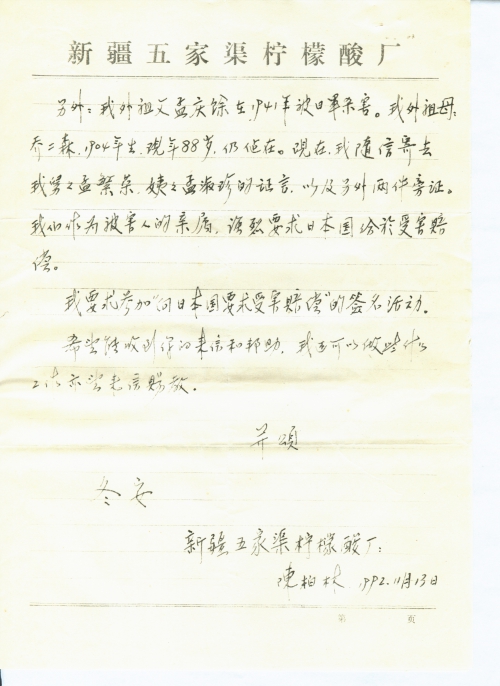 新疆五家渠柠檬酸厂
另外：我外祖父孟庆馀在1941年被日军杀害。我外祖母：
乔二森，1904年生，现年88岁，仍健在。现在，我随信寄去
我舅舅孟繁荣、姨姨孟淑珍的证言，以及另外两件旁证。
我们作为被害人的亲属，强烈要求日本国给於受害赔
偿。
我要求参加“向日本国要求受害赔偿”的签名活动。
希望能收到你的来信和帮助，我还可以做些什么
工作亦望来信赐教。
并颂
冬安
新疆五家渠柠檬酸厂：
陈柏林 1992.11月13日
第 页